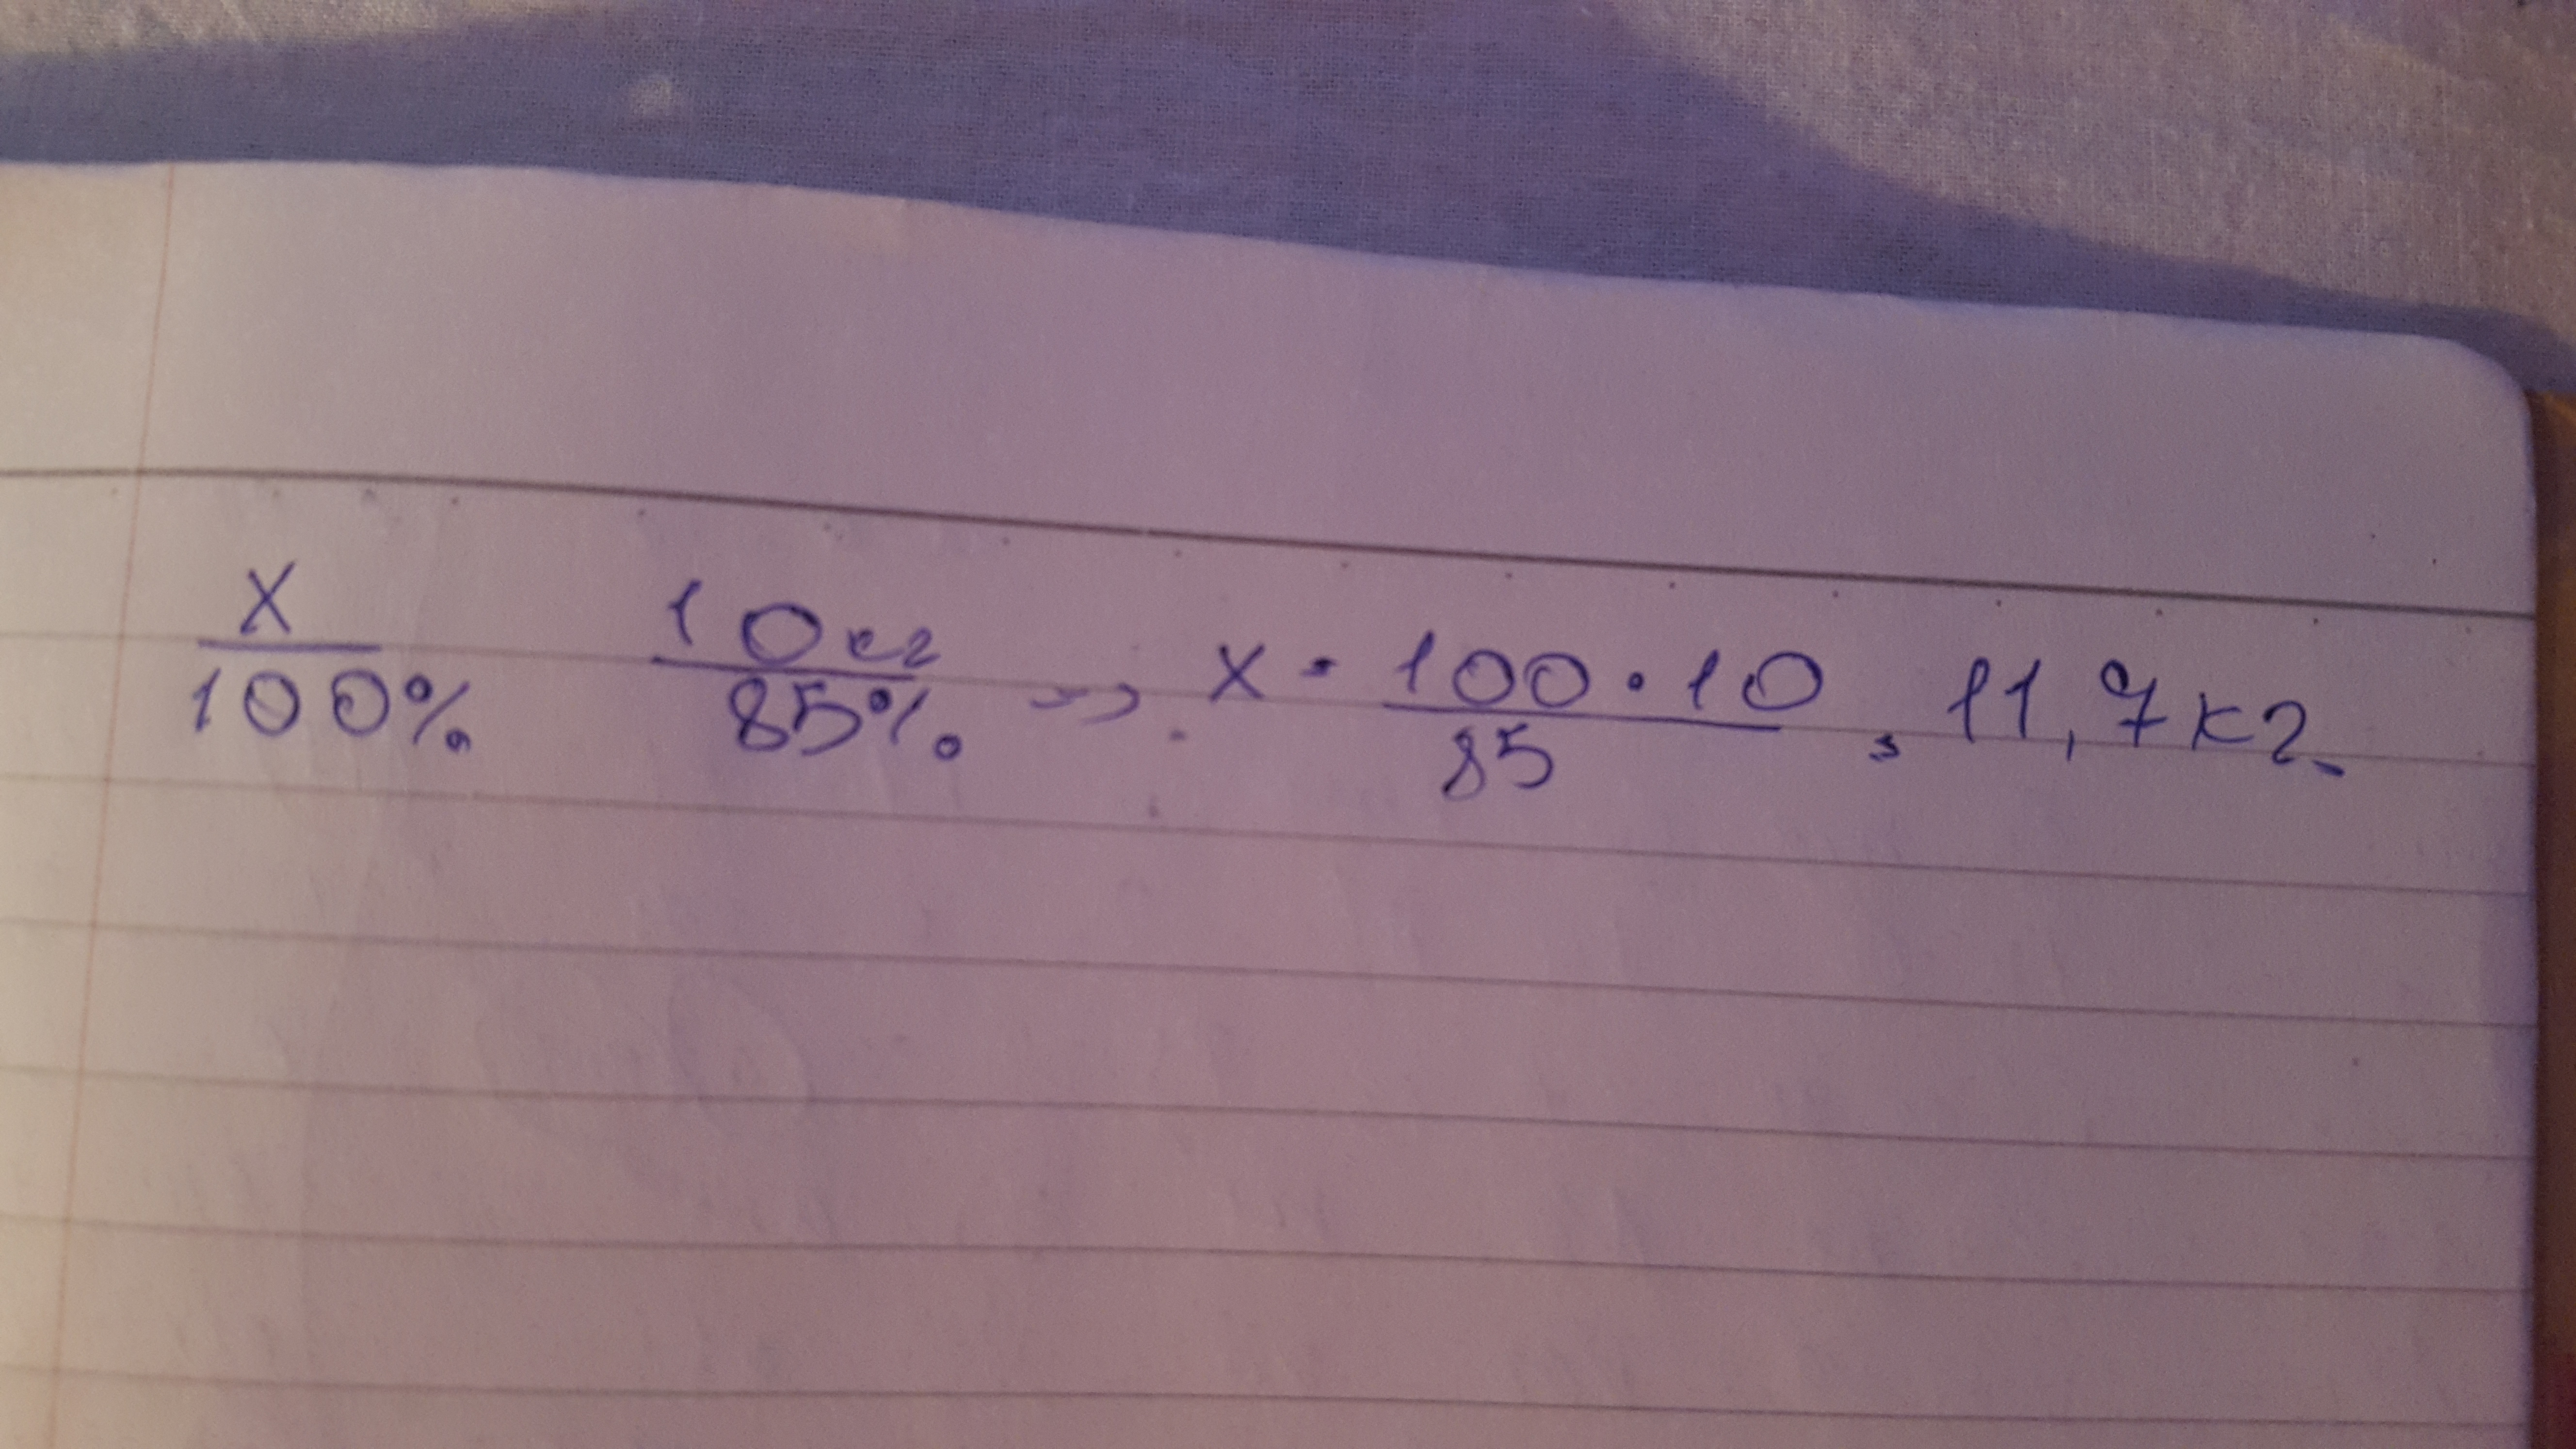 x/100% 10кг/85% => x = 100·10/85 = 11,7кг.